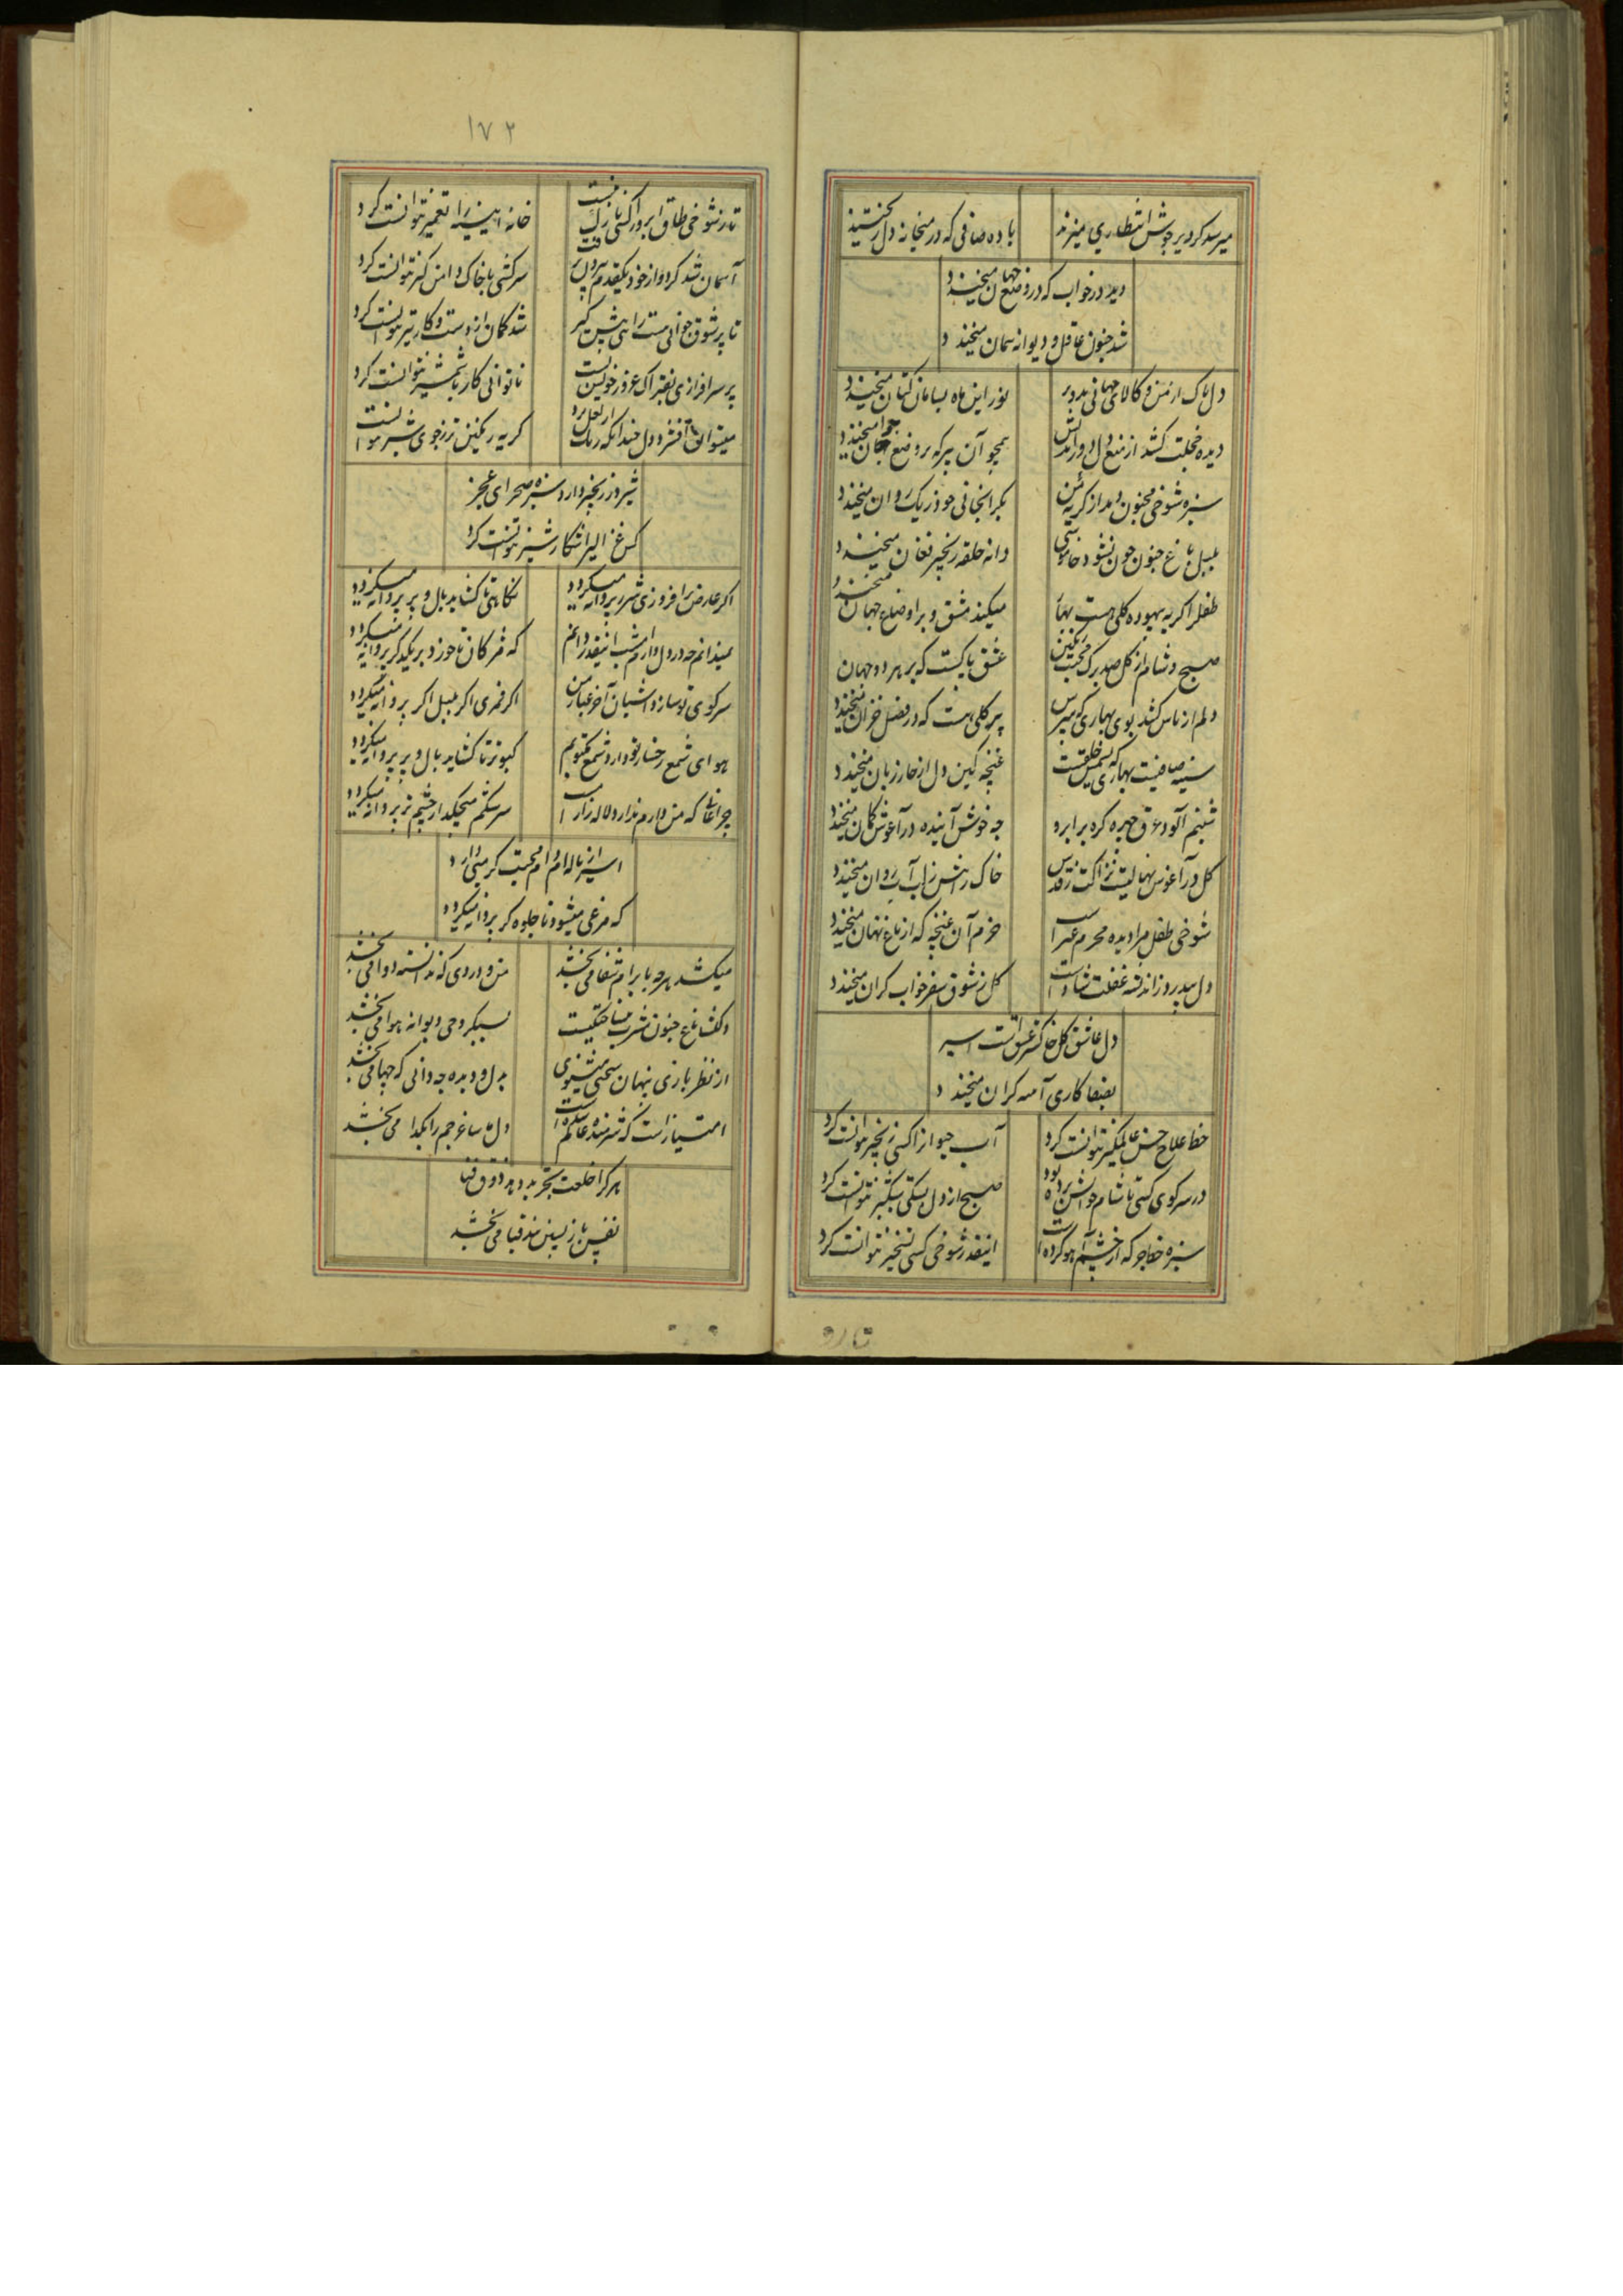 میرسد کر دیر جوش انتظاری میزند
باده صافی که در میخانه دل ریختند
دید در خواب که در وضع جهان میخندد
شد جنون عاقل و دیوانه سمان میخندد
دل پاک از من و کالای جهانی بدو بر
نور این ماه بسامان کتان میخندد
دیده خجلت کشد از منع دل و
همچو آن پیر که بر وضع جوان میخندد
سبزه شوخی مجنون دمد از گریه من
بگرانجانی خود ریک روان میخندد
بلبل باغ جنون چون نشود
دانه حلقه زنجیر فغان میخندد
طفل را گریه بیهوده کلی هست
میکند مشق و بر اوضاع جهان میخندد
صبح و شام از کل صد برک محبت رنگین
عشق پاکیست که بر هر دو جهان میخندد
دلم از یاس کشد بوی بهاری که مپرس
پیر کلی هست که در فصل خزان میخندد
سینه صافیست بهاری که
غنچه کین دل از خار زبان میخندد
شبنم آلود عرق چهره کره بر ابرو
چه خوش آینده در آغوش کمان میخندد
کل در آغوش نهالیست نزاکت
خاک راهش ز لب آب روان میخندد
شوخی طفل مرا دیده محرم عیب است
خرم آن غنچه که از باغ نهان میخندد
دل بیدرد ز اندیشه غفلت شاد است
کل ز شوق سفر خواب گران میخندد
دل عاشق کل خاکستر عشق است اسیر
بصفا کاری آینه گران میخندد
خط علاج حسن عالمگیر نتوانست کرد
آب حیوان را کسی زنجیر نتوانست کرد
در سر کوی کسی تا شام
صبح را از دل بستگی شبگیر نتوانست کرد
سبزه خط هر که از چشم آهو کرده است
اینقدر شوخی کسی تسخیر نتوانست کرد
۱۷۲
تا ز شوخی طاق ابرو را کسی نازک
خانه آیینه را تعمیر نتوانست کرد
آسمان شد گرد و از خود یکقدم بیرون نرفت
سرکشی با خاک دامن گیر نتوانست کرد
تا پر شوق جوانی مست را هی پیش گیر
شد کمان از دست و کار تیر نتوانست کرد
بر سرافرازی بفتراک غرور خویش
ناتوانی کار با شمشیر نتوانست کرد
میتوان افشرد دل چندانکه رنگ از لعل برد
گریه رنگین تر ز جوی شیر نتوانست
شیر در زنجیر دارد سبزه صحرای عجز
کس غزالی را شکار شیر نتوانست کرد
اگر عارض برافروزی شرر پروانه میگردد
نگاهی تا گشاید بال و پر پروانه میگردد
نمیدانم چه در دل دارم امشب اینقدر دانم
که مژگان تا خورد بر یکدگر پروانه میگردد
سر کوی تو سازد آشیان آخر غبار من
اگر قمری اگر بلبل اگر پروانه میگردد
هوای شمع رخسار تو دارد شمع مکتوبم
کبوتر تا گشاید بال و پر پروانه میگردد
چراغانی که من دارم ندارد لاله زار
سرشکم میچکد از چشم تر پروانه میگردد
اسیر از ناله ام دام محبت گرمیی دارد
که مرغی میشود تا جلوه گر پروانه میگردد
میکشد هر چه بابرام شفا می بخشد
من و دردی که ندانسته دوا می بخشد
دلگشا باغ جنون مشرب
سبکروحی دیوانه هوا می بخشد
از نظر بازی پنهان سخنی میشنوی
بدل و دیده چه دانی که چها می بخشد
امتیاز است که شرمنده عالم شده است
دل ما ساغر جم را بگدا می بخشد
هر که را خلعت تجرید دهد ذوق فنا
نفس بازپسین بند قبا می بخشد